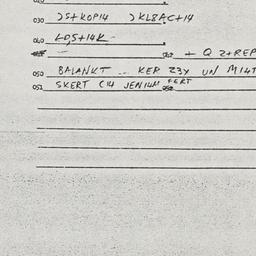 030 )S+KOP14 )KL8AC+14
040 LDS+14K
+ Q 2+REP
050 BALANKT -- KER Z3X UN M14T
052 SKERT C14 JEN14M FERT